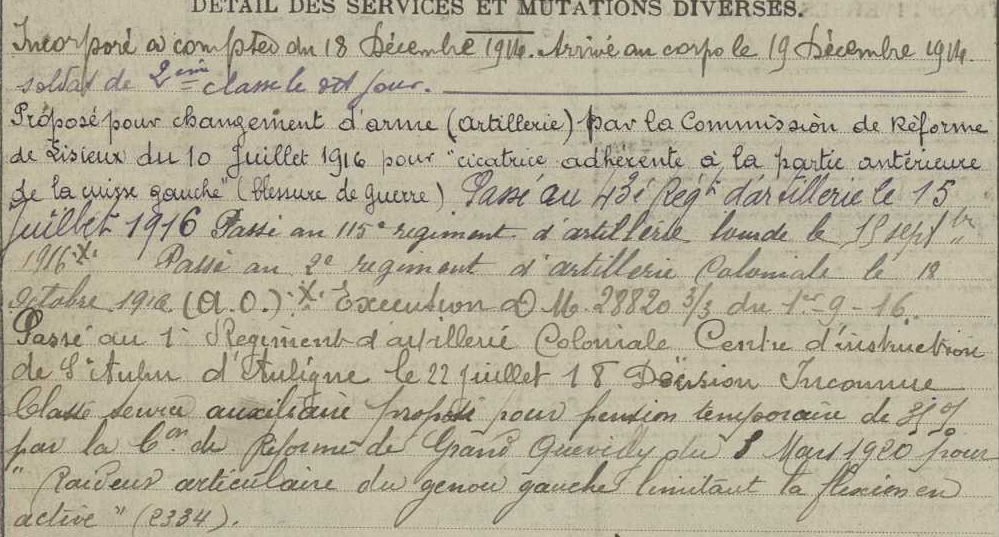 DÉTAIL DES SERVICES ET MUTATIONS DIVERSES.
Incorporé à compter du 18 Décembre 1914. Arrivé au corps le 19 Décembre 1914.
soldat de 2ème classe le dit jour.
Proposé pour changement d'arme (artillerie) par la Commission de Réforme
de Lisieux du 10 Juillet 1916 pour "cicatrice adhérente à la partie antérieure
de la cuisse gauche" (blessure de guerre). Passé au 43è Régt d'artillerie le 15
Juillet 1916 Passé au 115e régiment d'artillerie lourde le 15 septbre
1916 X. Passé au 2e régiment d'artillerie Coloniale le 18
octobre 1916 (A.O.) X Exécution D M. 28820 3/3 du 1er-9-16.
Passé au 1er Régiment d'artillerie Coloniale Centre d'instruction
de St Aubin d'Auligné le 22 juillet 18 Décision Inconnue
Classé service auxiliaire proposé pour pension temporaire de
par la Con de Réforme de Grand Quevilly du 8 Mars 1920 pour
"Raideur articulaire du genou gauche limitant la flexion en
active" (2334).